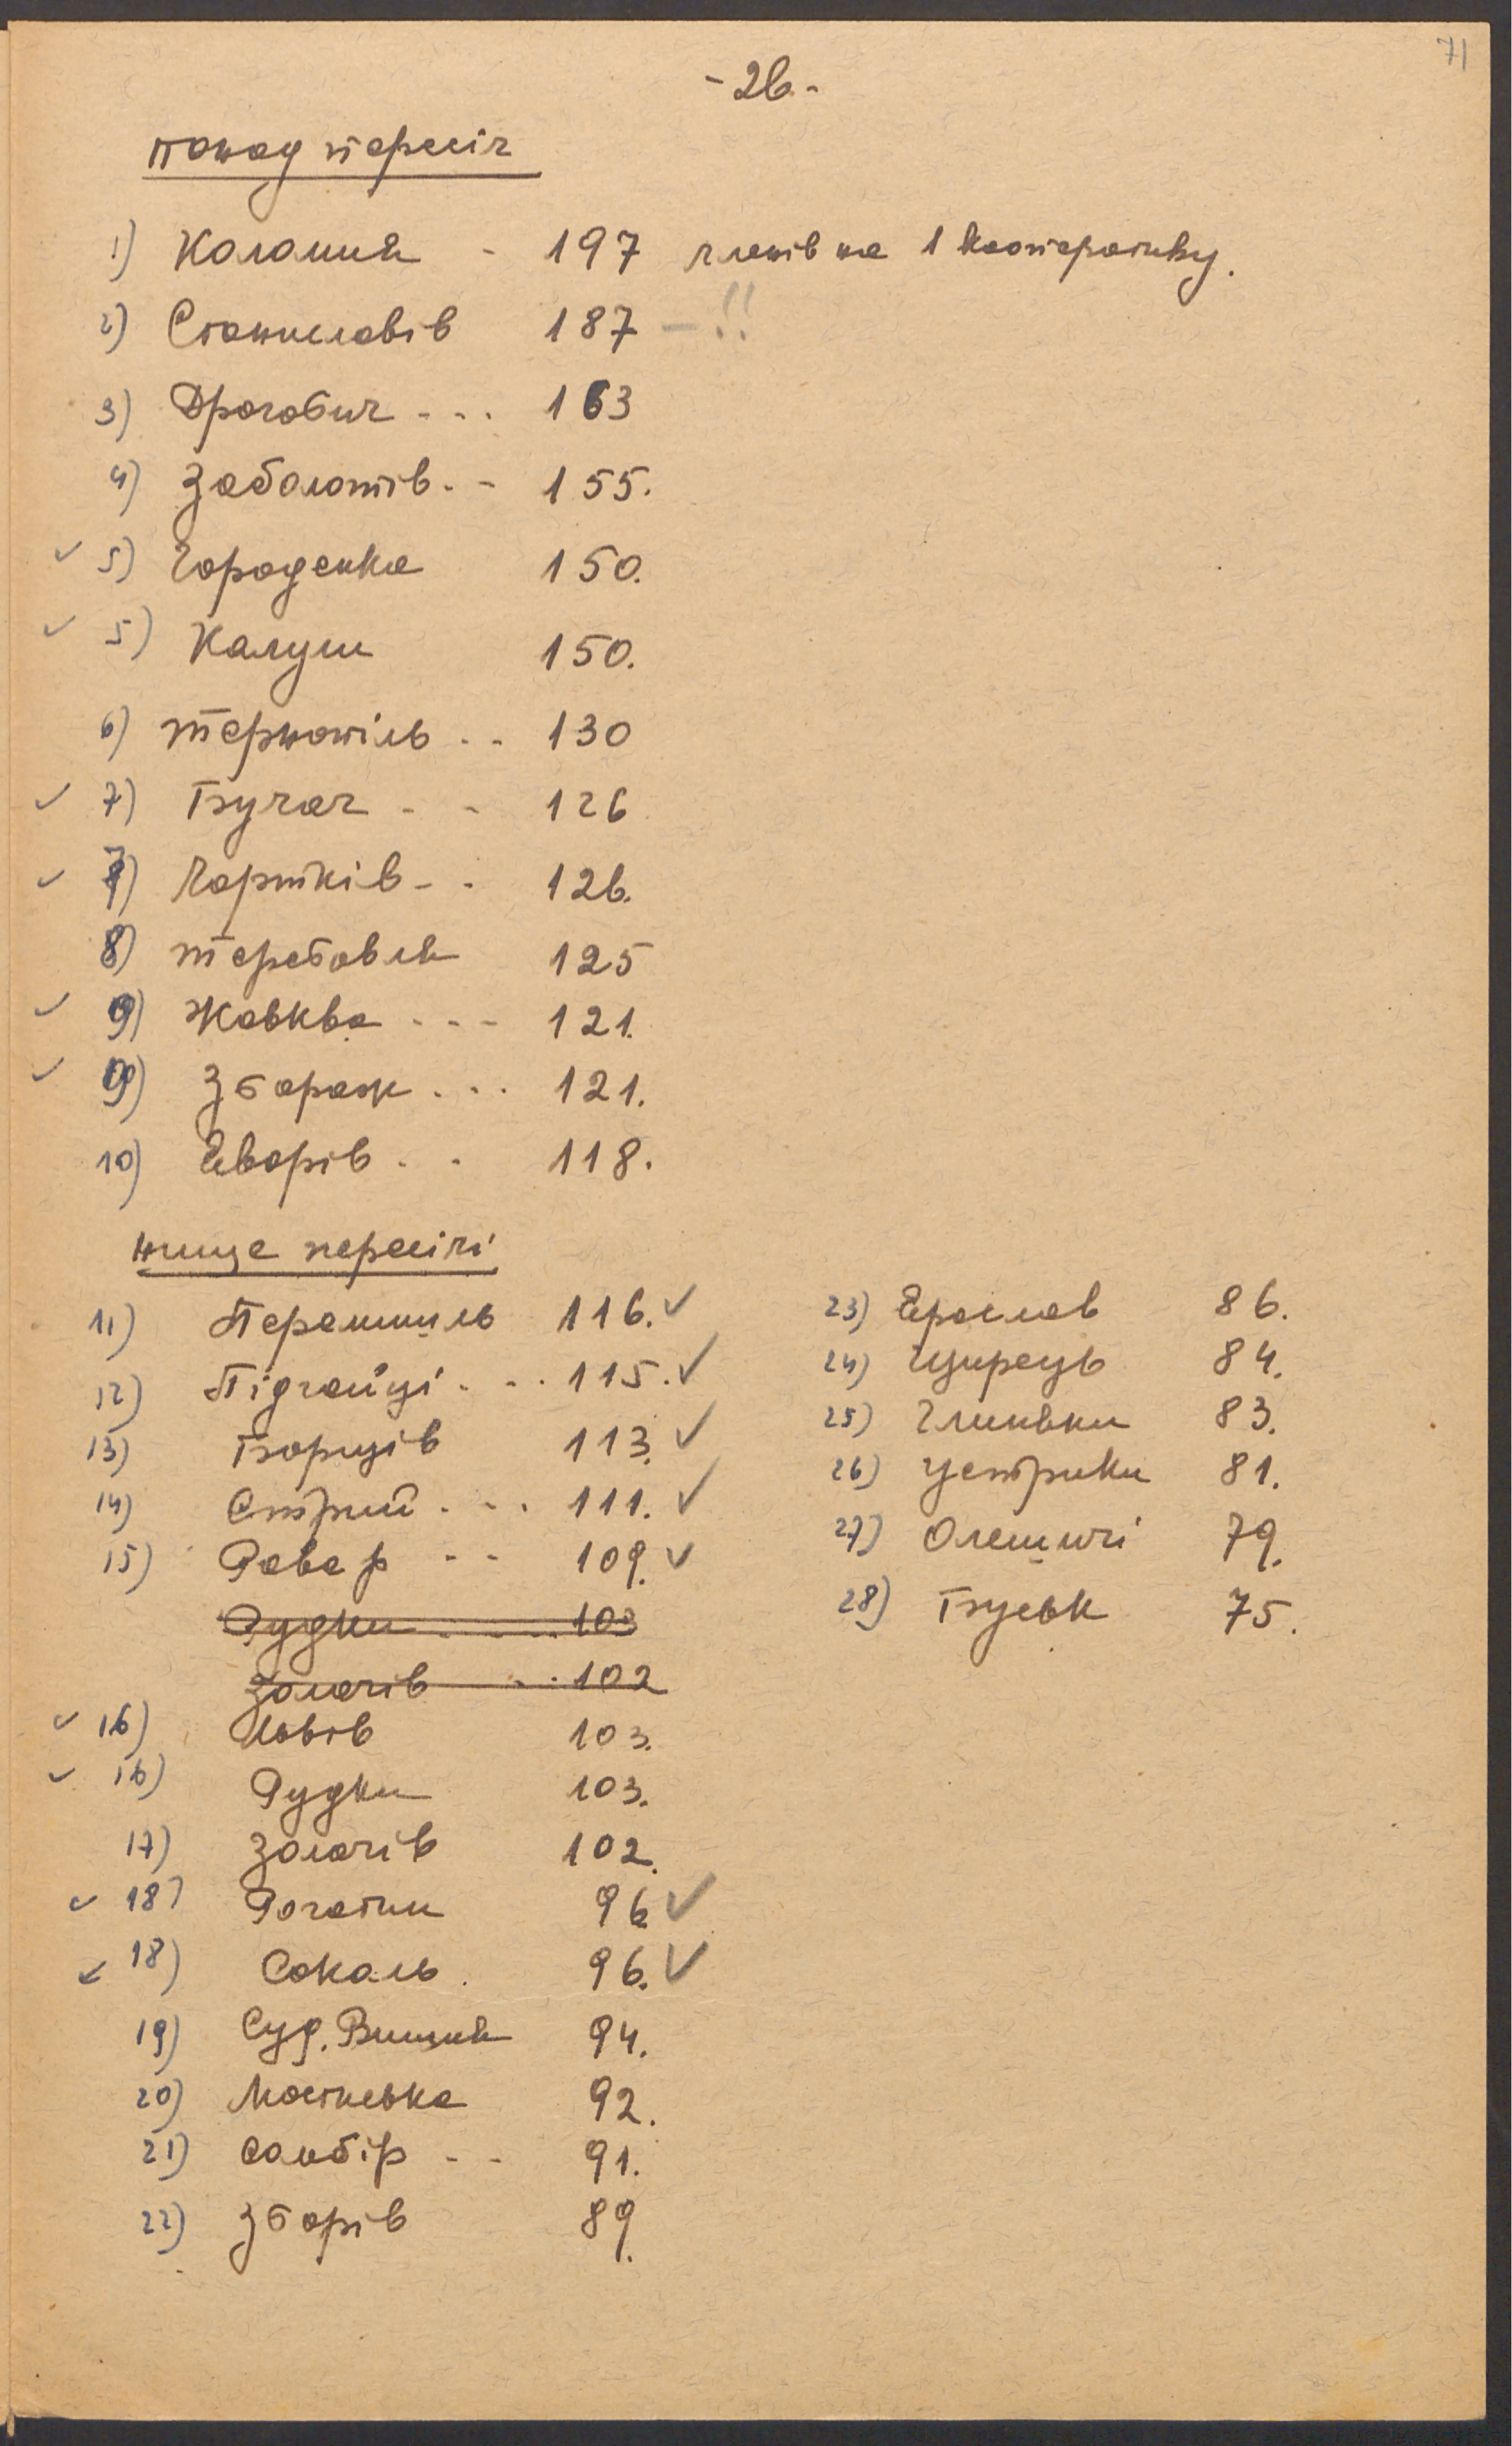 71
- 26. -
понад пересіч
1) Коломия - 197 членів на 1 кооперативу.
2) Станиславів 187 - !!
3) Дрогобич - - . 163
4) Заболотів. - 155.
✓ 5) Городенка 150.
✓ 5) Калуш 150.
6) Тернопіль . . 130
✓ 7) Бучач - - 126
✓ 7) Чортків - . 126.
8) Теребовля 125
✓ 9) Жовква - - - 121.
✓ 9) Збараж . . . 121.
10) Яворів . . 118.
нище пересічі
11) Перемишль 116. ✓
12) Підгайці . - . 115. ✓
13) Борщів 113. ✓
14) Стрий . - . 111. ✓
15) Рава р - - 109. ✓
Рудки . - - . . 103
Золочів - . . 102
✓ 16) Львів 103.
✓ 16) Рудки 103.
17) Золочів 102.
✓ 18) Рогатин 96. ✓
✓ 18) Сокаль . 96. ✓
19) Суд. Вишня 94.
20) Мостиська 92.
21) Самбір - - 91.
22) Зборів 89.
23) Ярослав 86.
24) Щирець 84.
25) Глиняни 83.
26) Устрики 81.
27) Олешичі 79.
28) Буськ 75.